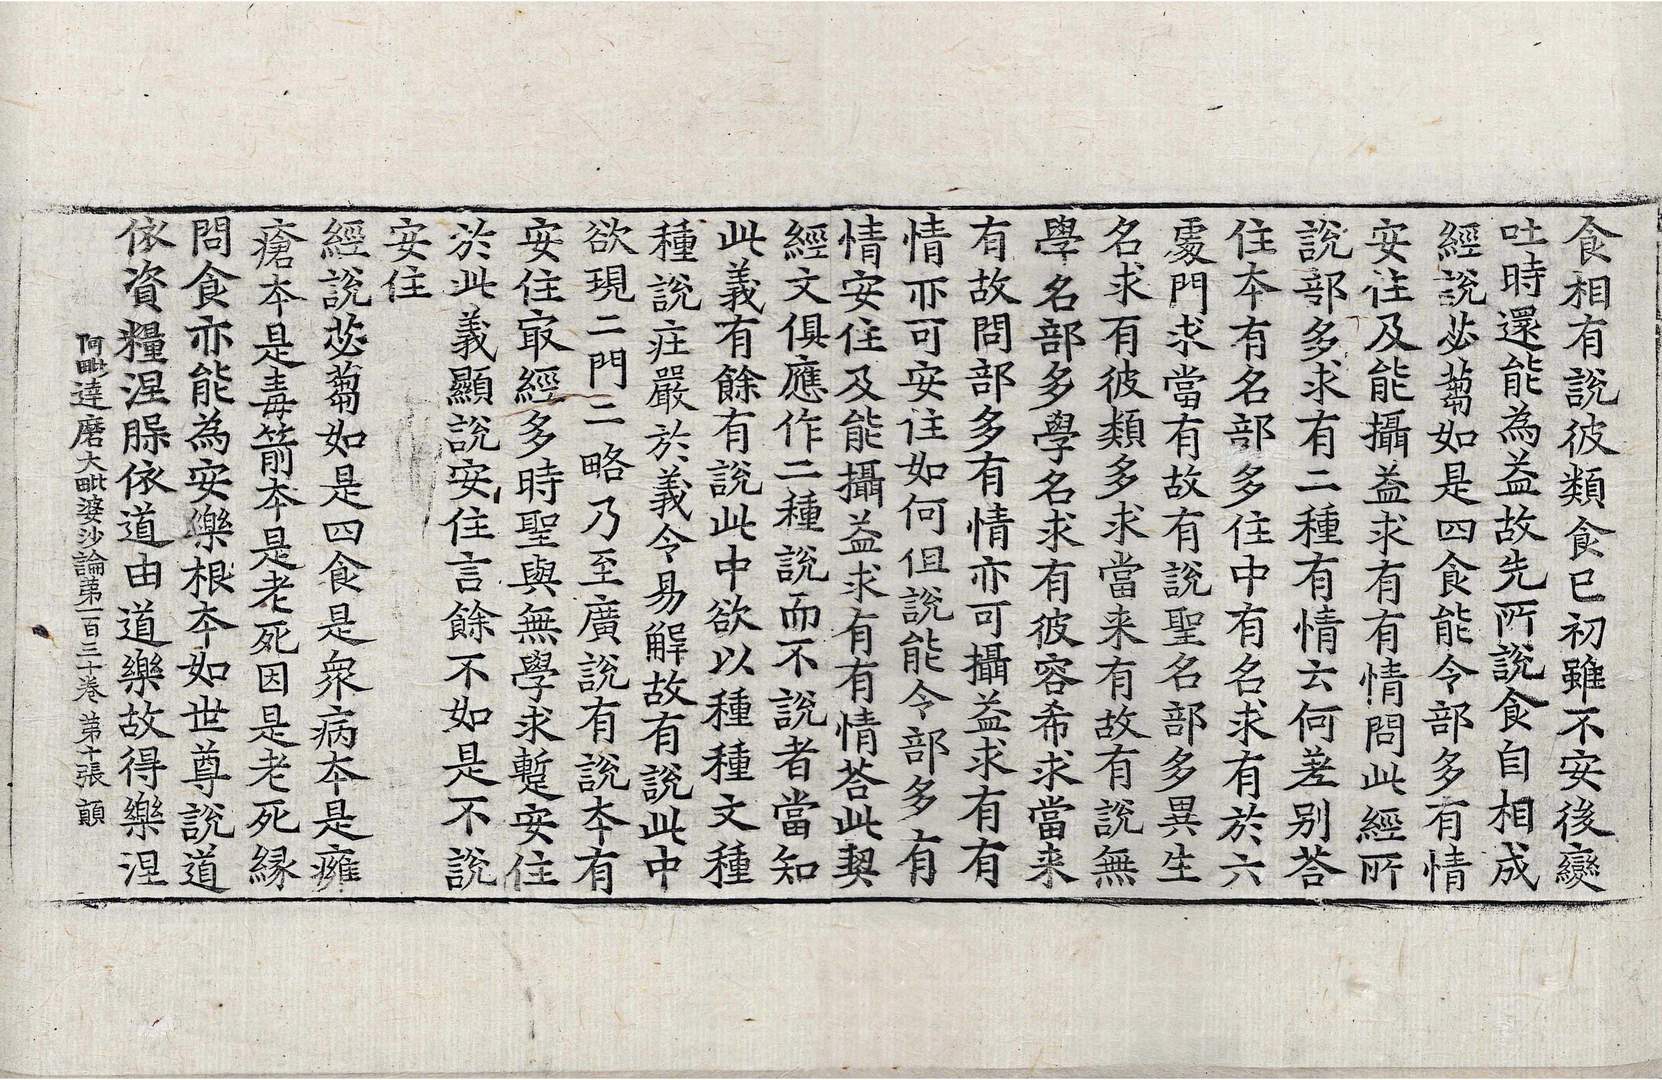 食相有說彼類食已初雖不安後變
吐時還能為益故先所說食自相成
經說苾蒭如是四食能令部多有情
安住及能攝益求有有情問此經所
說部多求有二種有情云何差別荅
住夲有名部多住中有名求有於六
處門求當有故有說聖名部多異生
名求有彼類多求當来有故有說無
學名部多學名求有彼容希求當来
有故問部多有情亦可攝益求有有
情亦可安住如何但說能令部多有
情安住及能攝益求有有情荅此契
經文俱應作二種說而不說者當知
此義有餘有說此中欲以種種文種
種說莊嚴於義令易解故有說此中
欲現二門二略乃至廣說有說夲有
安住㝡經多時聖與無學求蹔安住
於此義顯說安住言餘不如是不說
安住
經說苾蒭如是四食是衆病夲是癰
瘡夲是毒箭夲是老死因是老死緣
問食亦能為安樂根夲如世尊說道
依資糧涅槃依道由道樂故得樂涅
阿毗達磨大毗婆沙論第一百三十卷 第十張 顛